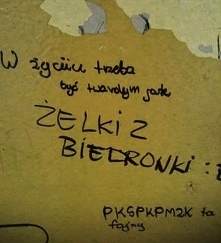 W życiu trzeba
być twardym jak
ŻELKI Z
BIEDRONKI :
PKSPKPM2K ta
fajny